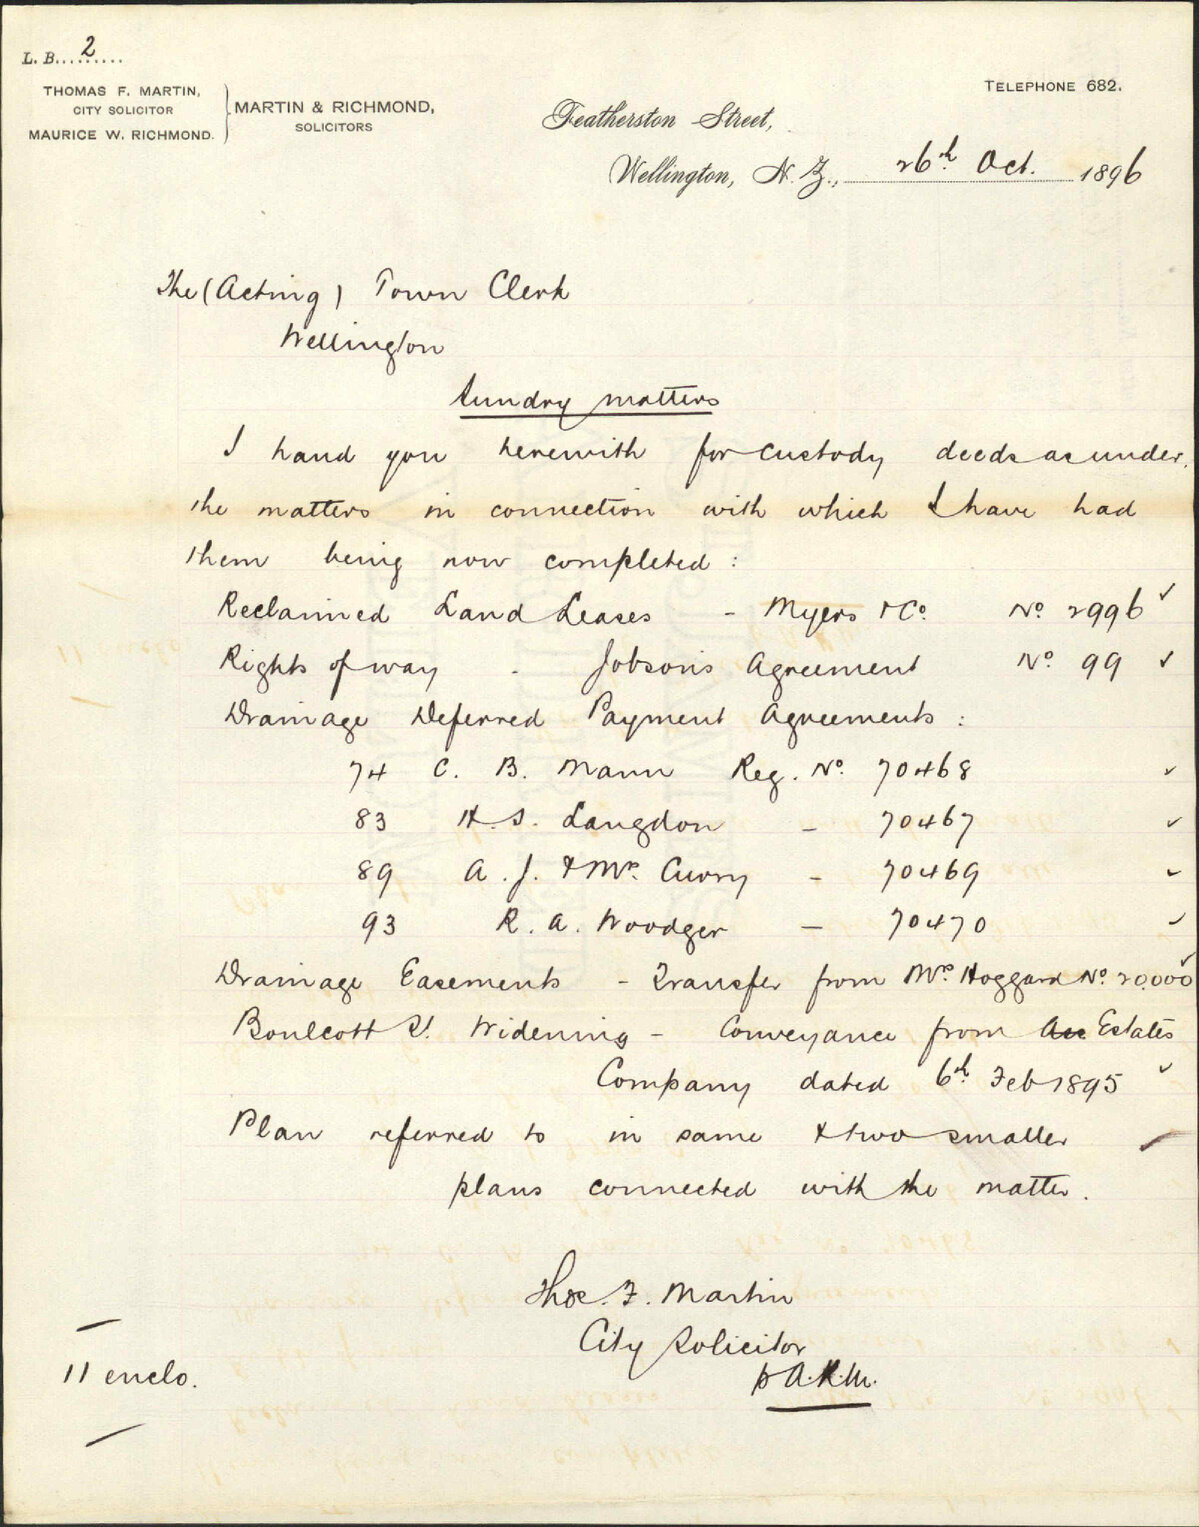 L. B. 2
THOMAS F. MARTIN,
CITY SOLICITOR
MAURICE W. RICHMOND.
MARTIN & RICHMOND,
SOLICITORS
TELEPHONE 682.
Featherston Street,
Wellington, N. Z., 26th Oct. 1896
The (Acting) Town Clerk
Wellington
Sundry matters
I hand you herewith for custody deeds as under,
the matters in connection with which I have had
them being now completed :
Reclaimed Land Leases - Myers & Co. No. 2996 ✓
Rights of way - Jobson's Agreement No. 99 ✓
Drainage Deferred Payment Agreements :
74 C. B. Mann Reg. No. 70468 ✓
83 H. S. Langdon - 70467 ✓
89 A. J. & Mrs. Curry - 70469 ✓
93 R. A. Woodger - 70470 ✓
Drainage Easements - Transfer from Mrs. Hoggard No. 20,000 ✓
Boulcott St. Widening - Conveyance from Estates
Company dated 6th Feb 1895 ✓
Plan referred to in same & two smaller
plans connected with the matter.
Thos. F. Martin
City Solicitor
p A.R.M.
11 enclo.